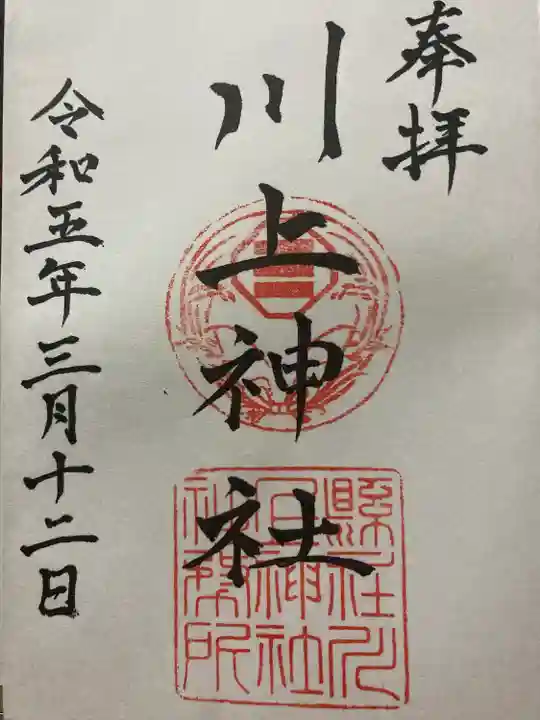 奉拝
川上神社
縣社川
上神社
社務所
令和五年三月十二日